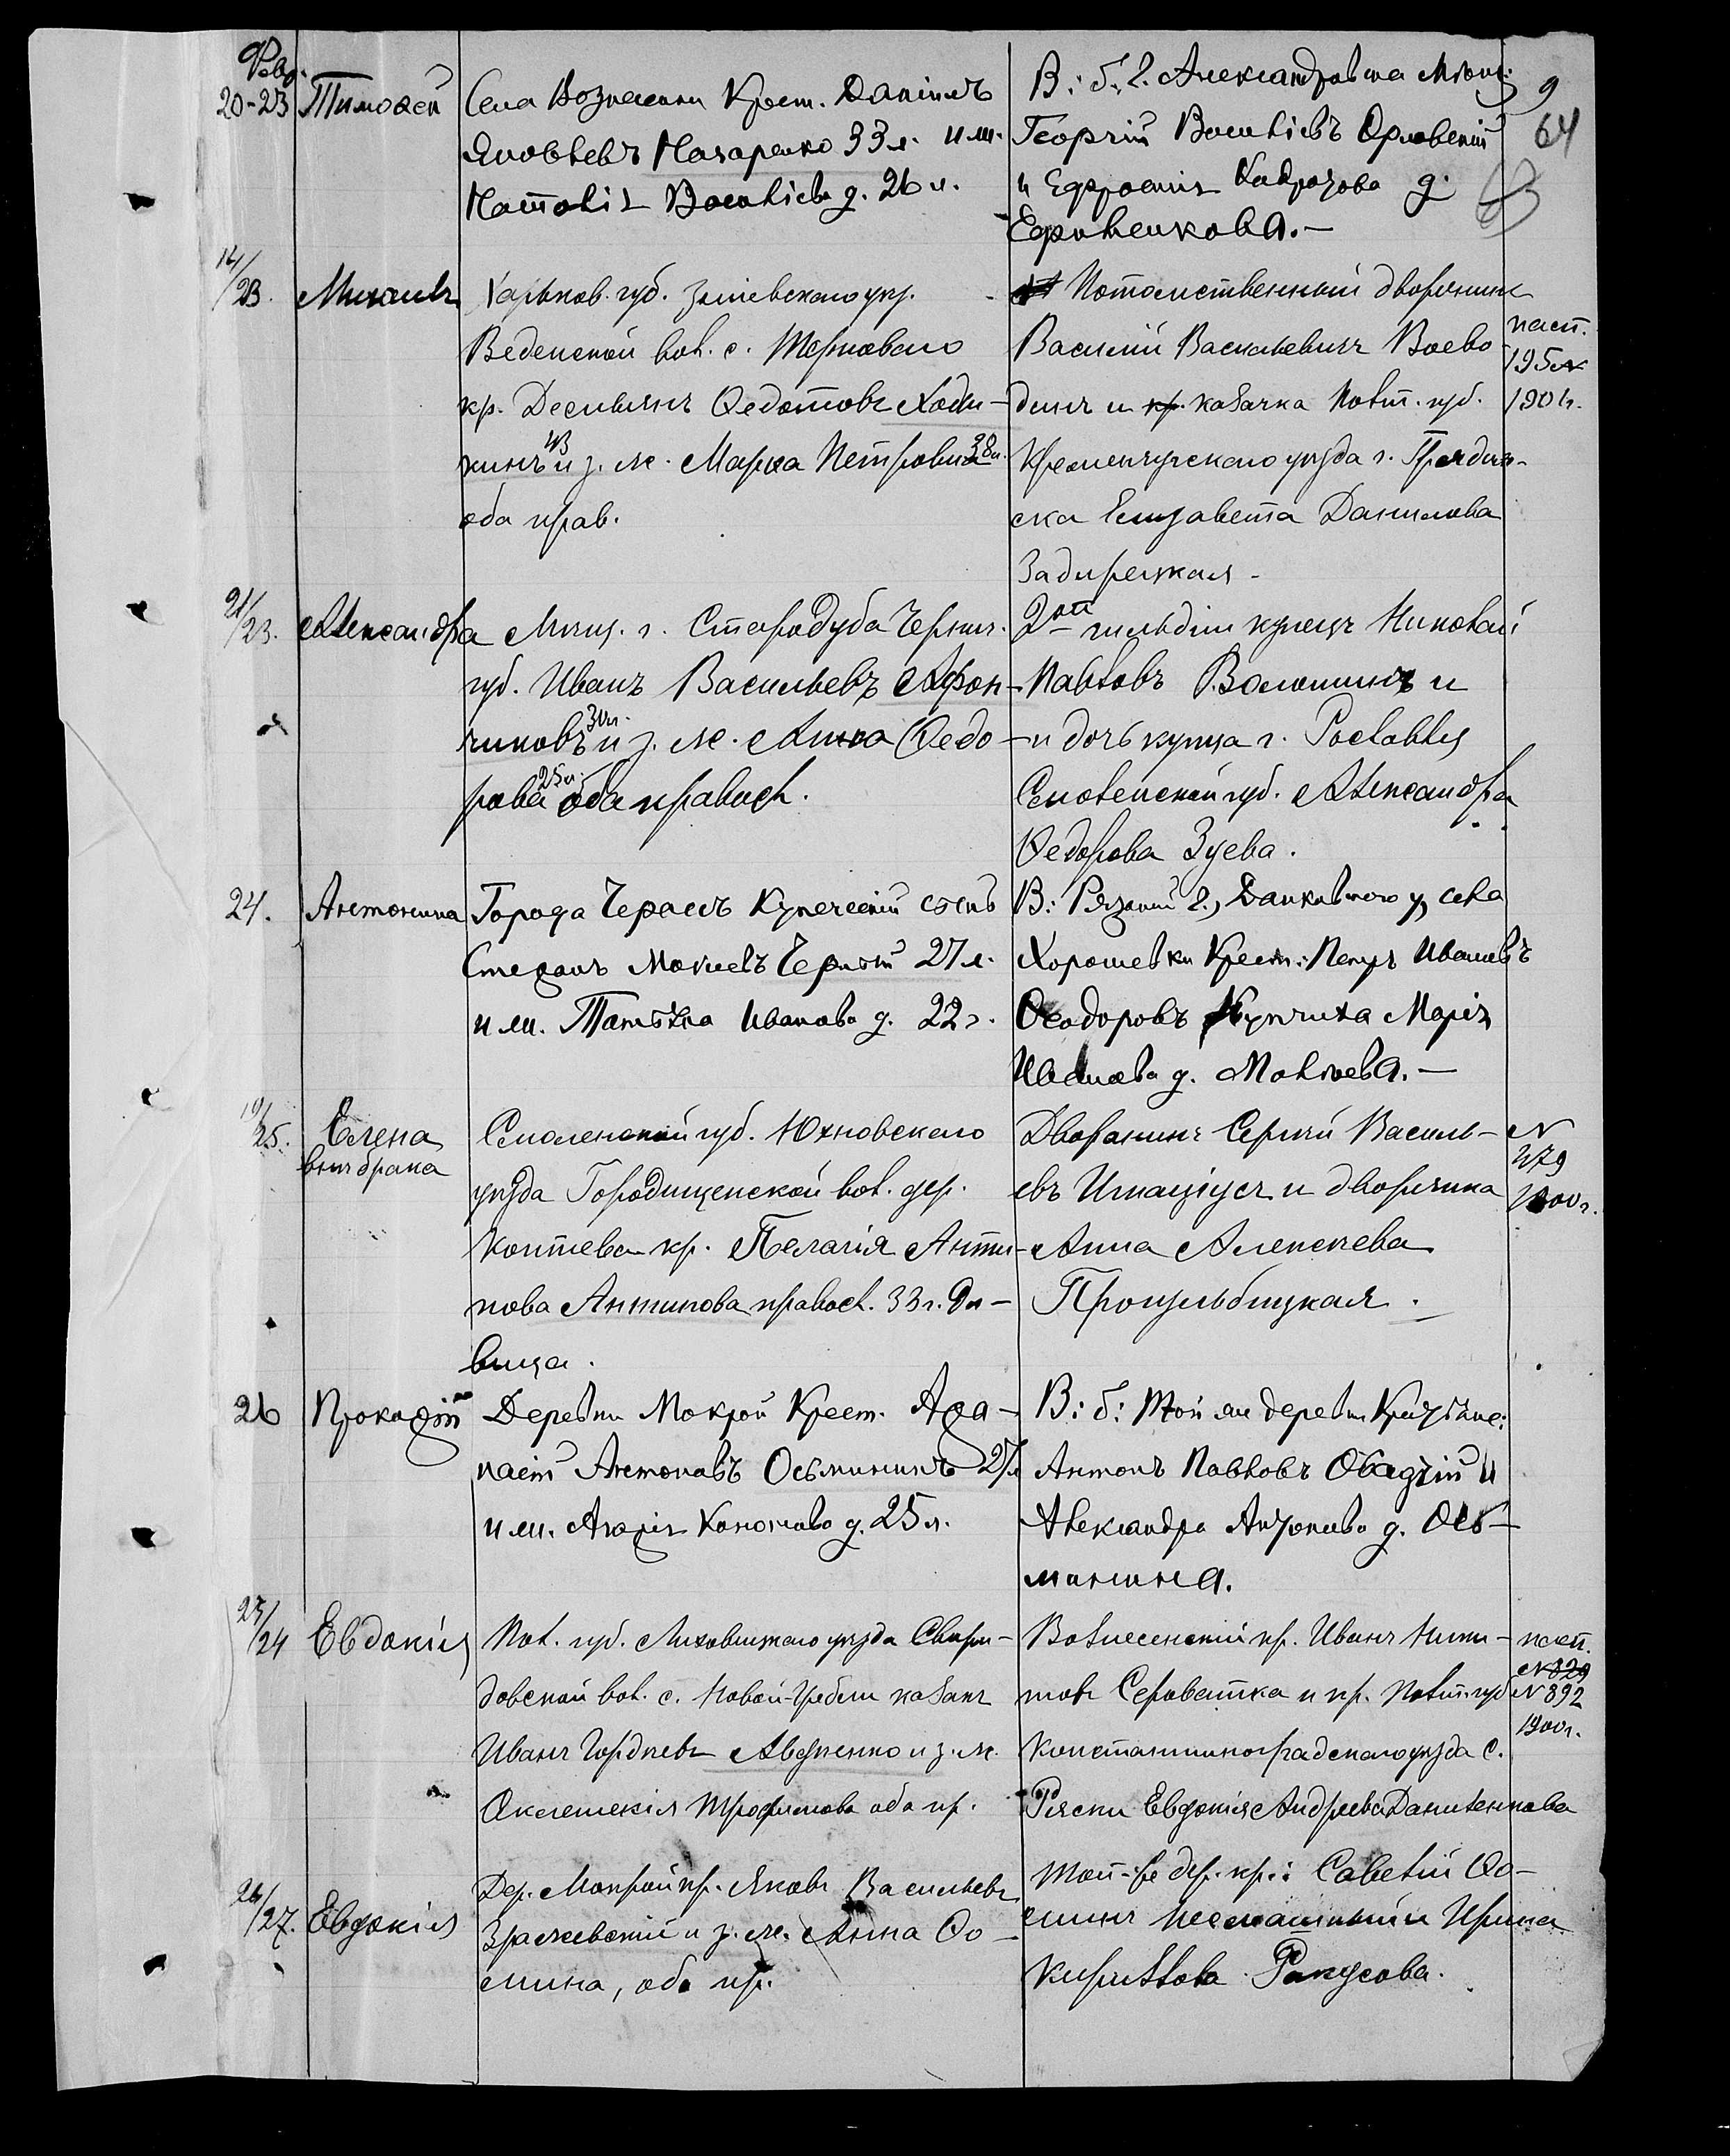 Февр.
20-23 Тимофей Села Вознесенки Крест. Даніилъ
Яковлевъ Назаренко 33 л. и ж.
Наталія Васильева д. 26 л.
В: б: г. Александровска Мѣщ:
Георгій Васильевъ Орловскій
и Ефросинія д.
9
64
63
14/23. Михаилъ Харьков. губ. Зміевского уѣз.
Веденской вол. с. Терноваго
кр. Федотовъ Ходы-
кинъ 43 и з. ж. Марѳа Петрова 38 л.
оба прав.
Потомственный дворянинъ
Василій Васильевичъ Воево-
динъ и кр. казачка Полт. губ.
Кременчугскаго уѣзда г. Градиж-
ска Елизавета Данилова
Задирецкая.
пасп.
195 №
190 г.
21/23. Александра Мѣщ. г. Стародуба Черниг.
губ. Иванъ Васильевъ Афон-
чиковъ 30 л. и з. ж. Анна Ѳедо-
рова 25 л. оба правосл.
2ой гильдіи купецъ Николай
Павловъ Волошинъ и
и дочь купца г. Рославля
Смоленской губ. Александра
Ѳедорова Зуева.
24. Антонина Города Черкасъ Купеческій сынъ
Стефанъ Мокіевъ Черный 27 л.
и ж. Татьяна Иванова д. 22 г.
В: Рязанской г., Данковского у, села
Хорошевки Крест: Петръ Ивановъ
Ѳеодоровъ Купчиха Марія
Иванова д.
19/25. Елена
внѣ брака
Смоленской губ. Юхновскаго
уѣзда Городищенской вол. дер.
Коптева кр. Пелагія Анти-
пова Антипова правосл. 33 г. Дѣ-
вица.
Дворянинъ Сергѣй Василь-
евъ Игнаціусъ и дворянка
Анна Алексѣева
№
479
1900 г.
26 Прокофій Деревни Мокрой Крест. Аѳа-
насій Антоновъ Осьмининъ 27 л
и ж. Агафія Кононова д. 25 л.
В: б: Той же деревни Крестьяне:
Антонъ Павловъ и
Александра Антонова д. Ось-
минина.
23/24 Евдокія Пол. губ. Лохвицкаго уѣзда Свири-
довской вол. с. Новой-Гребли казакъ
Иванъ Гордѣевъ Авдѣенко и з. ж.
Трофимова оба пр.
Вознесенскій кр. Иванъ Ники-
товъ Сероватка и кр. Полт. губ
Константиноградскаго уѣзда с.
Ряски Евдокія Андреева Даниленкова
пасп.
№ 829
№ 392
1900 г.
26/27. Евдокія Дер. Мокрой кр. Яковъ Васильевъ
Зражевскій и з. ж. Анна Ѳо-
мина, оба пр.
Той-же дер. кр.: Савелій Ѳо-
минъ и Ирина
Кириллова Ракусова.